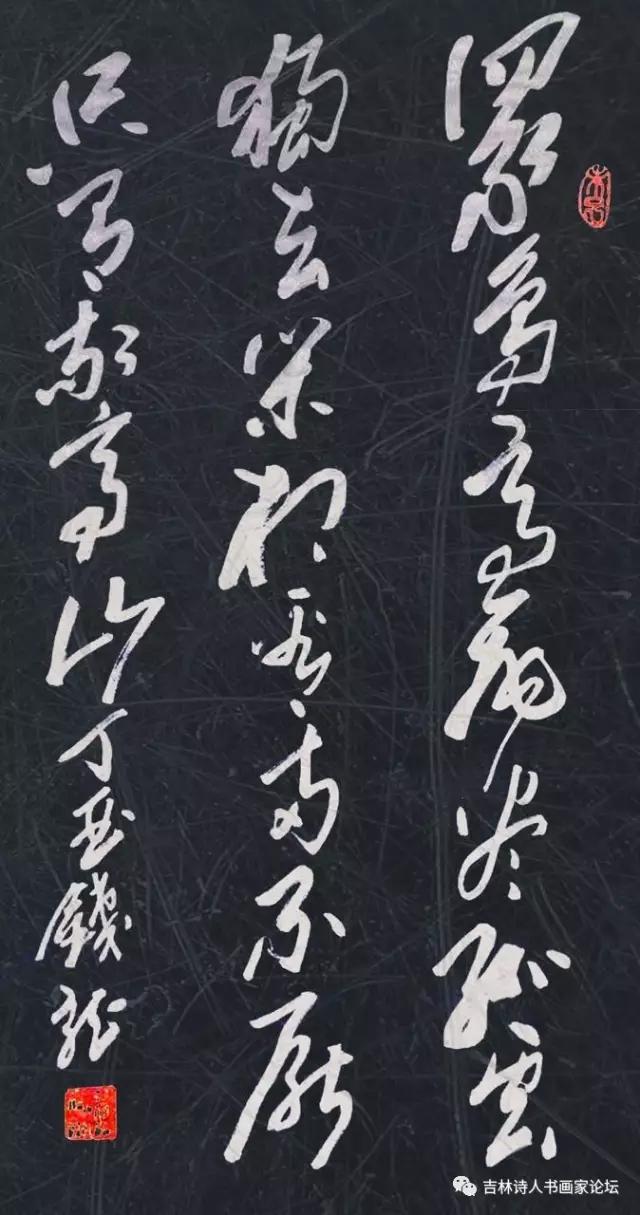 眾鳥高飛尽孤雲
獨去閑相看两不厭
只有敬亭山丁酉錢龍
吉林诗人书画家论坛